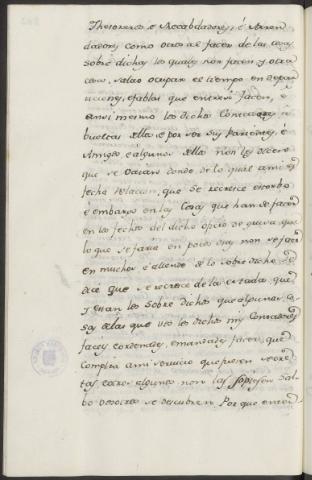 Thesoreros e Recabdadores, é Arren
dadores como otros al facer de las cosas
sobre dichas los quales non facen y otra
cosa, salvo ocupan el tiempo en
e fablas que entre si facen, é
ansi mismo los dichos Contadores
bueltas ellos é por sus Parientes, é
Amigos é algunos ellos non les
que se Vacan donde de lo qual ami es
fecha relacion, que se recrece estorbo
é embargo en las cosas que han de facer
en los fechos del dicho oficio de guisa que
lo que se faria en pocos dias non se face
en muchos é allende de lo sobre dicho
dice que se recrece de la estada, que
y estan los sobre dichos que algunas co
sas de las que Yo los dichos mis Contadores
facer é ordenar, é mandar facer, que
cumplen a mi servicio que fuesen secre
tas é otros algunos non las sopiesen sal
bo Vosotros se descubren. Por que entend